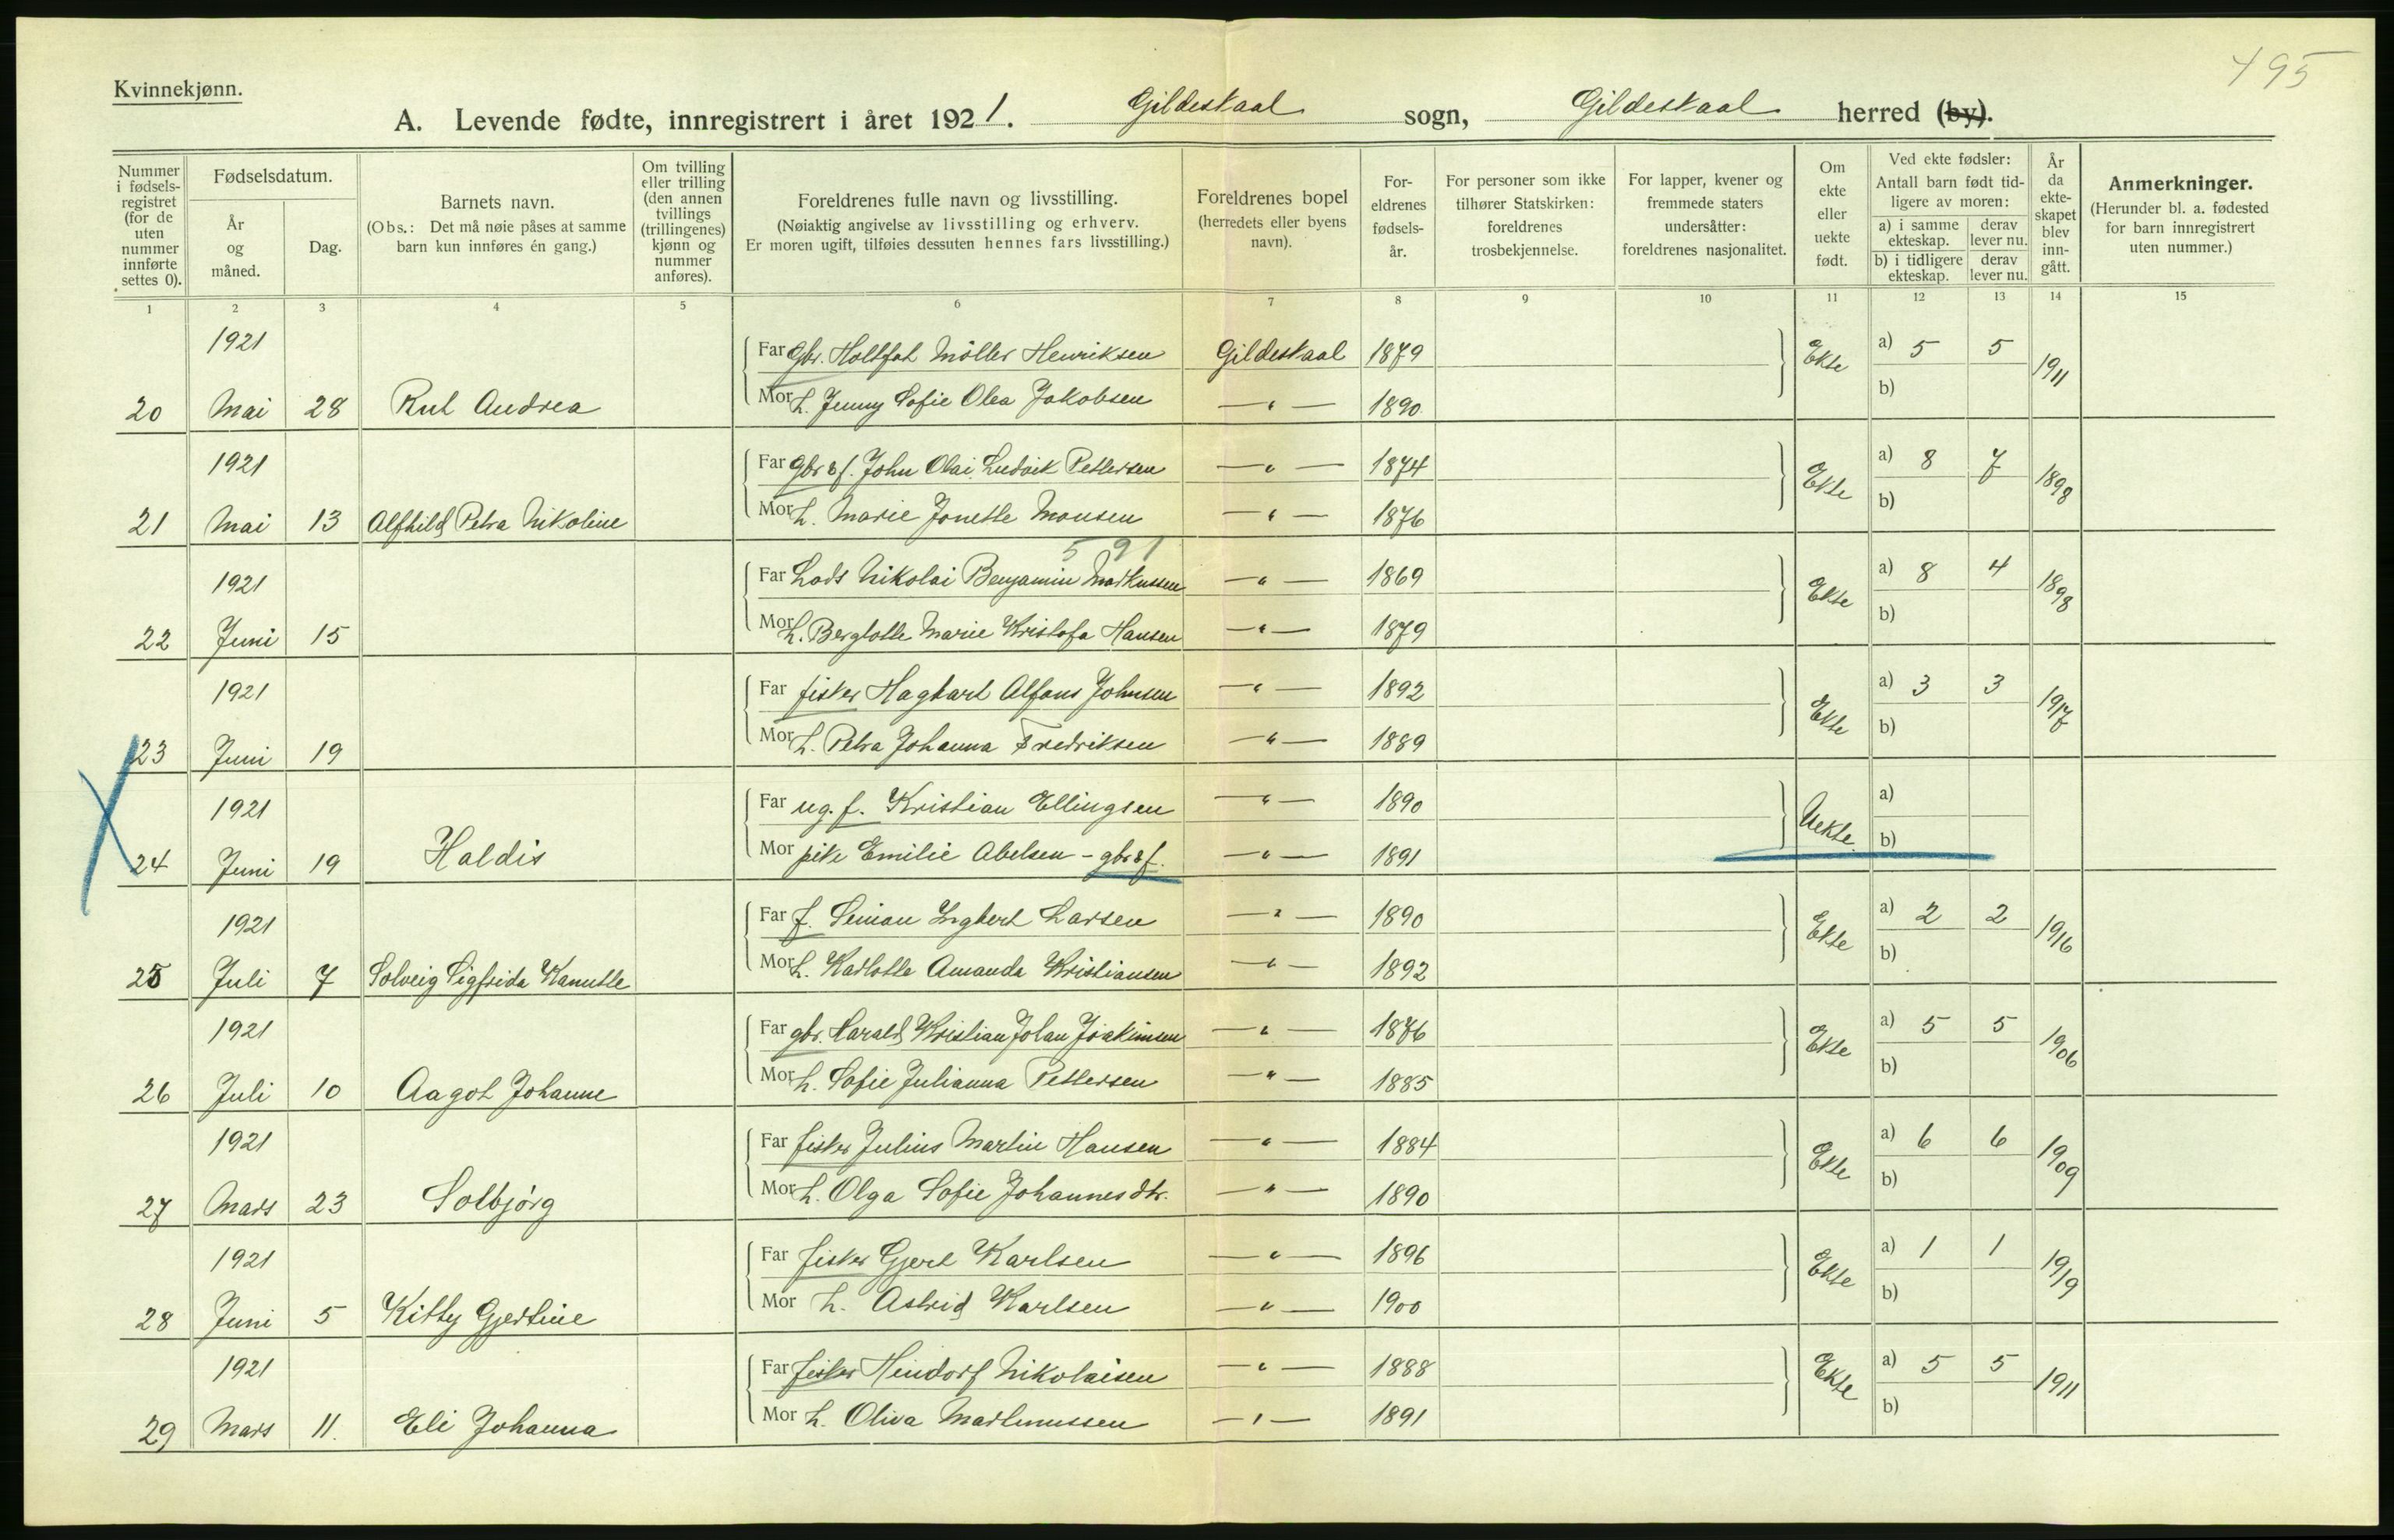 495
Kvinnekjønn.
A. Levende fødte, innregistrert i året 1921. Gildeskaal sogn, Gildeskaal herred (by).
Nummer i fødsels-registret (for de uten nummer innførte settes 0).
Fødselsdatum.
År og måned.
Dag.
Barnets navn.
(Obs.: Det må nøie påses at samme barn kun innføres én gang.)
Om tvilling eller trilling (den annen tvillings (trillingenes) kjønn og nummer anføres).
Foreldrenes fulle navn og livsstilling.
(Nøiaktig angivelse av livsstilling og erhverv.
Er moren ugift, tilføies dessuten hennes fars livsstilling.)
Foreldrenes bopel (herredets eller byens navn).
For-eldrenes fødsels-år.
For personer som ikke tilhører Statskirken: foreldrenes trosbekjennelse.
For lapper, kvener og fremmede staters undersåtter: foreldrenes nasjonalitet.
Om ekte eller uekte født.
Ved ekte fødsler: Antall barn født tid-ligere av moren:
a) i samme ekteskap. derav lever nu.
b) i tidligere ekteskap. derav lever nu.
År da ekte-skapet blev inn-gått.
Anmerkninger.
(Herunder bl. a. fødested for barn innregistrert uten nummer.)
1 2 3 4 5 6 7 8 9 10 11 12 13 14 15
1921 Far gbr. Møller Henriksen Gildeskaal 1879 Ekte a) 5 5 1911
20 Mai 28 Rut Andrea Mor h. Jenny Sofie Olea Jakobsen — " — 1890 b)
1921 Far gbr & f. John Olai Ludvik Pettersen — " — 1874 Ekte a) 8 7 1898
21 Mai 13 Alfhild Petra Nikoline Mor h. Marie Jonette Monsen — " — 1876 b)
591
1921 Far Lods Nikolai Benjamin Markussen — " — 1869 Ekte a) 8 4 1898
22 Juni 15 Mor h. Berglotte Marie Kristofa Hansen — " — 1879 b)
1921 Far fisker Hagbart Alfons Johnsen — " — 1892 Ekte a) 3 3 1917
23 Juni 19 Mor h. Petra Johanna Fredriksen — " — 1889 b)
1921 Far ug. f. Kristian Ellingsen — " — 1890 Uekte. a)
24 Juni 19 Haldis Mor pike Emilie Abelsen - gbr & f. — " — 1891 b)
1921 Far f. Simon Ingbert Larsen — " — 1890 Ekte a) 2 2 1916
25 Juli 7 Solveig Sigfrida Kanutte Mor h. Karlotte Amanda Kristiansen — " — 1892 b)
1921 Far gbr. Harald Kristian Johan Joakimsen — " — 1876 Ekte a) 5 5 1906
26 Juli 10 Aagot Johanne Mor h. Sofie Julianna Pettersen — " — 1885 b)
1921 Far fisker Julius Martin Hansen — " — 1884 Ekte a) 6 6 1909
27 Mars 23 Solbjørg Mor h. Olga Sofie Johannesdtr. — " — 1890 b)
1921 Far fisker Gjert Karlsen — " — 1896 Ekte a) 1 1 1919
28 Juni 5 Kitty Gjertine Mor h. Astrid Karlsen — " — 1900 b)
1921 Far fisker Heindorf Nikolaisen — " — 1888 Ekte a) 5 5 1911
29 Mars 11. Eli Johanna Mor h. Oliva Martinussen — " — 1891 b)